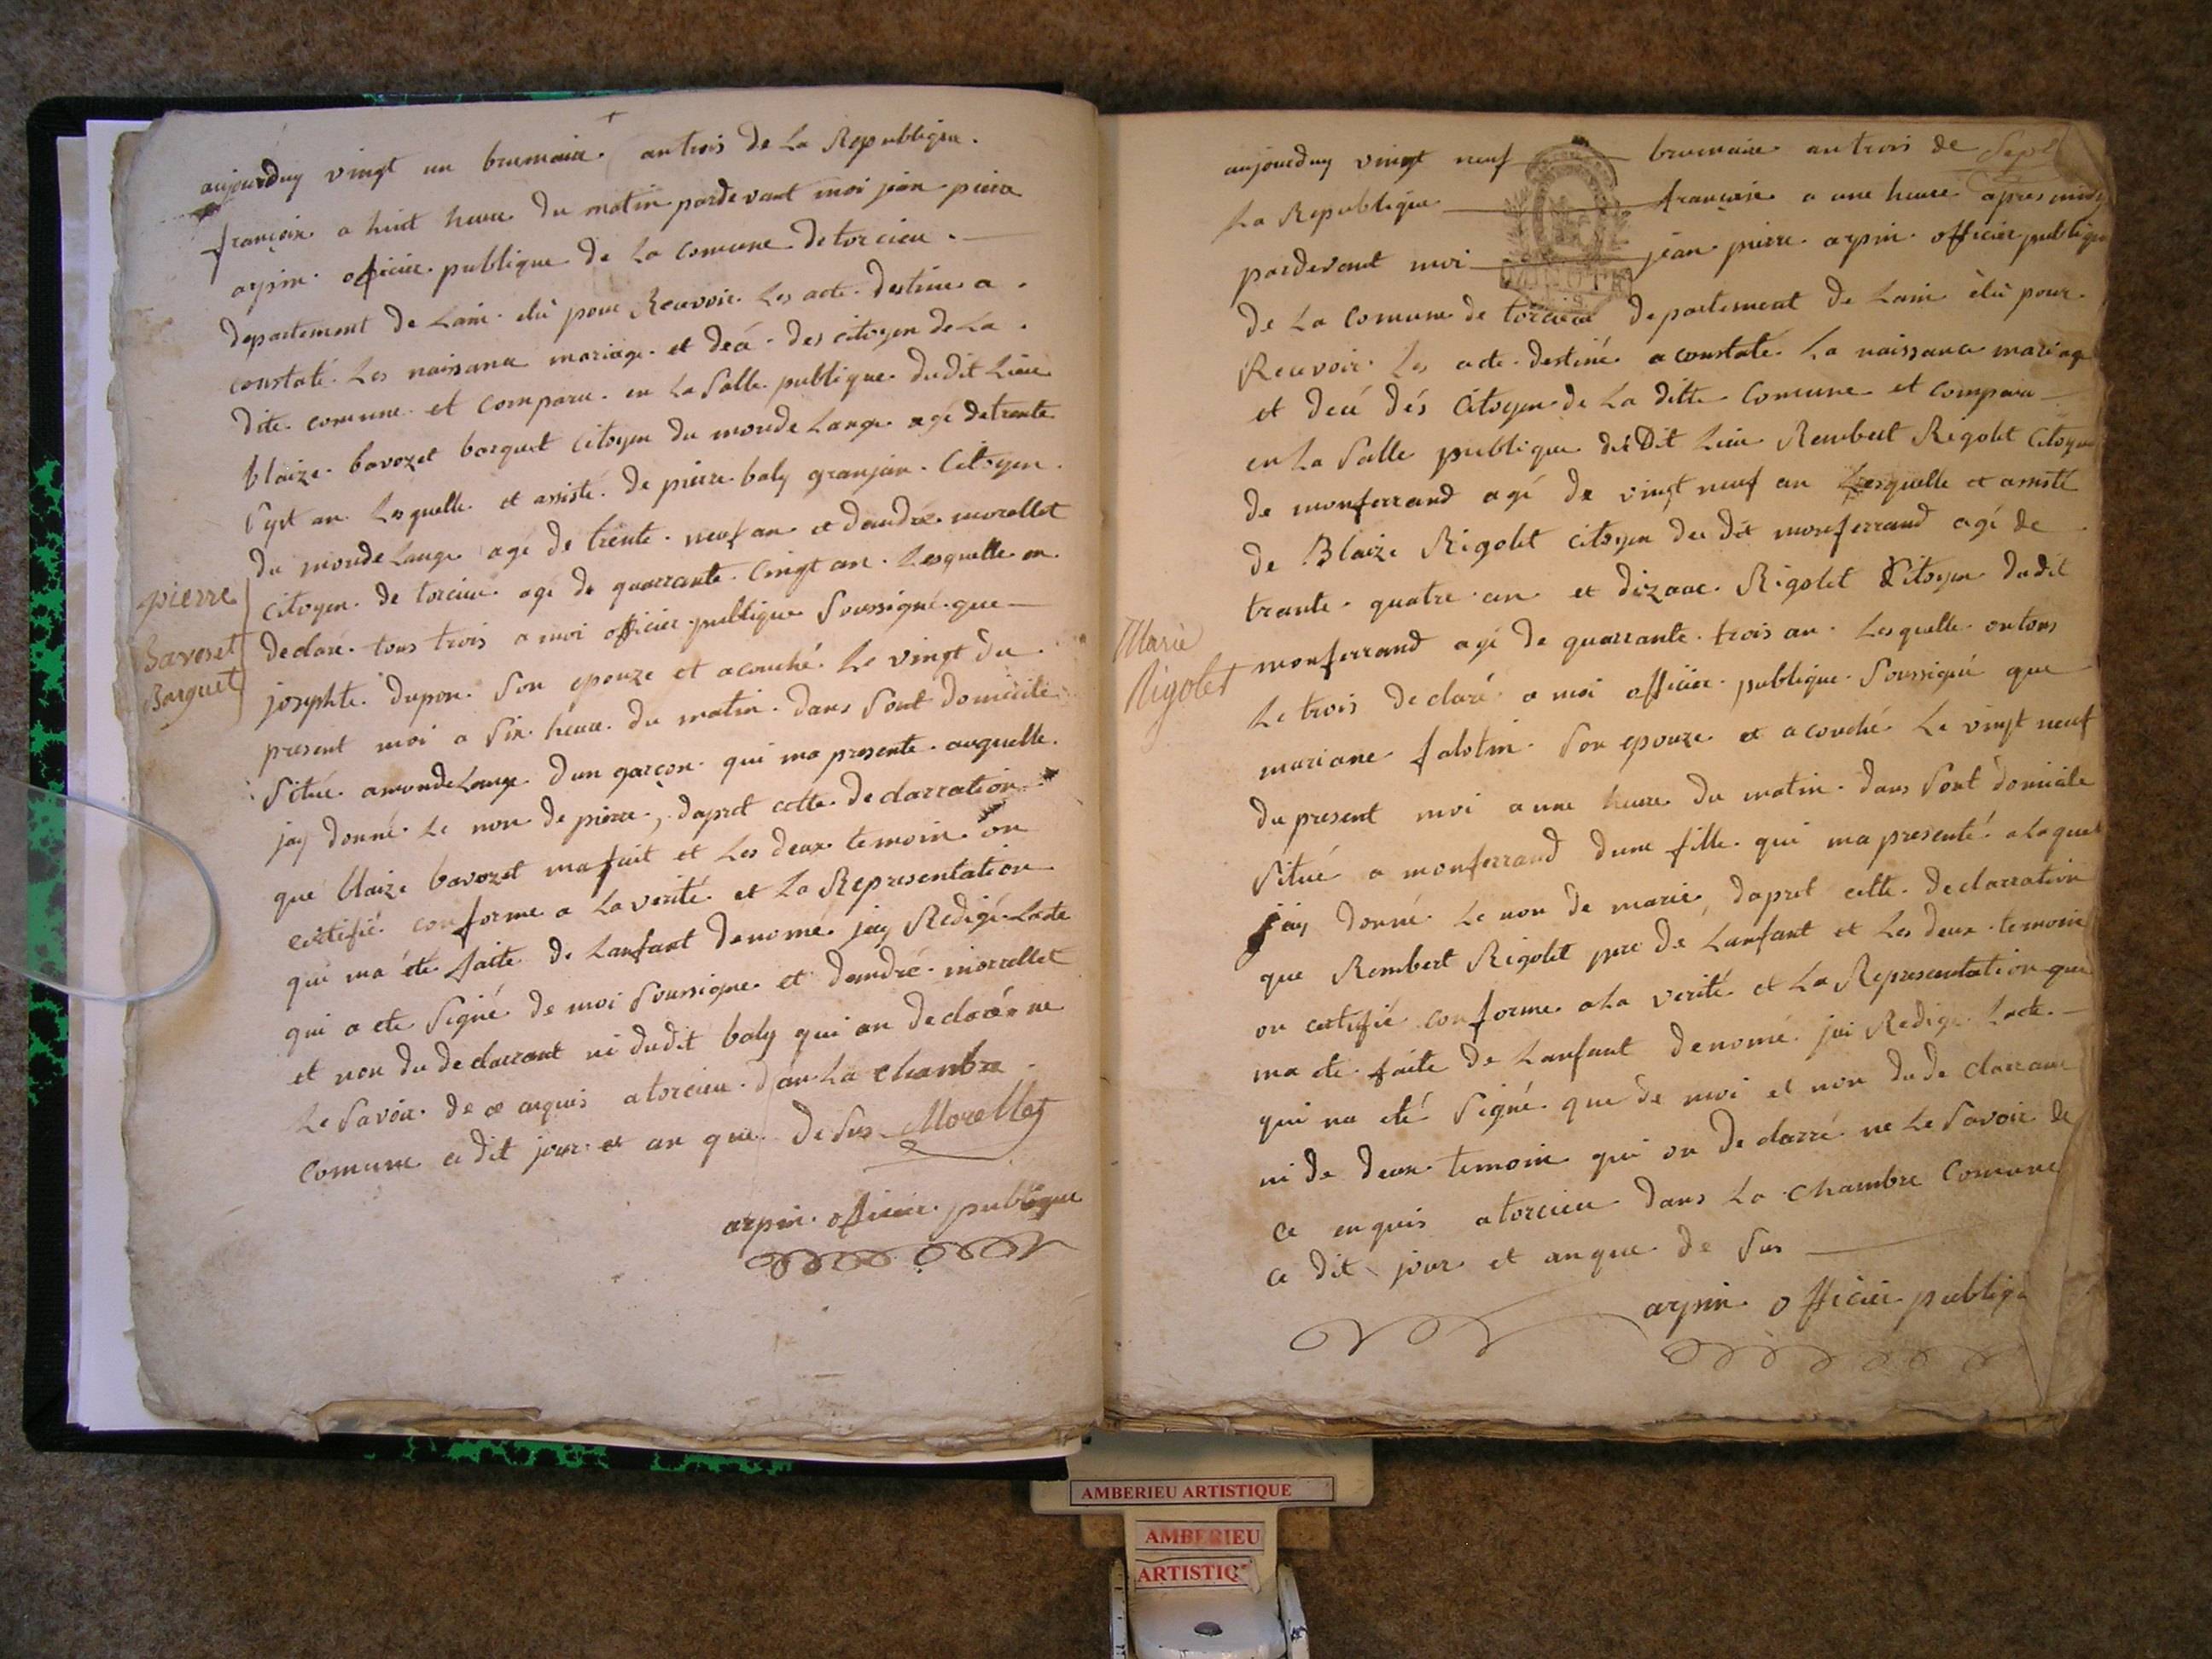 aujourduy vingt un brumaire an trois de La Republique
françoise a huit heure du matin pardevant moi jean pierre
arpin officier publique de la comune de torcieu
departement de Lain élu pour Recevoir Les acte destine a
constaté Les naisance mariage et decé des citoyen de La
dite comune et comparu en La Salle publique dudit Lieu
blaize bavozet barquet citoyen du monde Lange agé de trente
Sept an Lesquelle et assisté de pierre baly granjan Citoyen
du monde Lange agé de trente neuf an et dandré morellet
citoyen de torcieu agé de quarrante Cingt an Lesquelle on
declaré tous trois a moi officier publique Soussigné que
josephte dupon Son epouze et acouché Le vingt du
present moi a Six heure du matin dans Sont domicile
Situé a monde Lange dun garçon qui ma presente auquelle
jay donné Le non de pierre, dapret cette declarration
que blaize bavozet ma fait et Les deux temoin on
certifié conforme a La verité et La Representation
qui ma été faite de Lanfant denomé jay Redigé Lacte
qui a ete Signé de moi Soussigne et dandré morrellet
et non du declarrant ni dudit baly qui on declaré ne
Le Savoir de ce anquis a torcieu dan La chambre
Comune ce dit jour et an que deSus Morellet
arpin officier publique
pierre
Bavoset
Barquet
aujourduy vingt neuf brumaire an trois de
La Republique françoise a une heure apres midy
pardevant moi jean pierre arpin officier publique
de La Comune de torcieu departement de Lain élu pour
Recevoir Les acte destiné a constaté La naissance mariage
et decé dés Citoyen de La ditte Comune et comparu
en La Salle publique dudit Lieu Rembert Rigolet Citoyen
de monferrand agé de vingt neuf an Lesquelle et assisté
de Blaize Rigolet citoyen du dit monferrand agé de
trante quatre an et dizaac Rigolet Citoyen dudit
monferrand agé de quarrante trois an Lesquelle on tous
Le trois declaré a moi officier publique Soussigné que
mariane falotin Son epouze et acouché Le vingt neuf
du present moi a une heure du matin dans Sont domicile
Situé a monferrand dune fille qui ma presenté a Laquel
jay donné Le non de marie, dapret cette declarration
que Rembert Rigolet pere de Lanfant et Les deux temoin
on certifié conforme a La verité et La Representation qui
ma ete faite de Lanfant denomé jai Redigé Lacte
qui na eté Signé que de moi et non du declarrant
ni de deux temoin qui on declarré ne Le Savoir de
ce enquis a torcieu dans La chambre Comune
ce dit jour et an que de Sus
arpin officier publiq
Marie
Rigolet
AMBERIEU ARTISTIQUE
AMBERIEU
ARTISTIQ